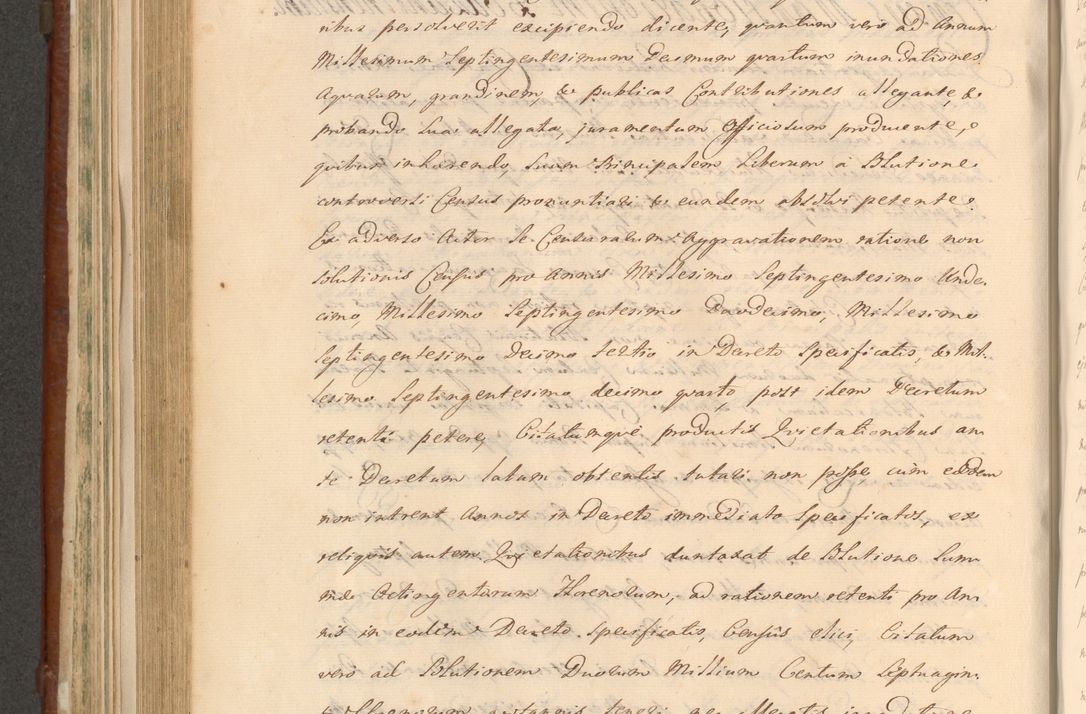 ribus persolverit excipiendo dicente, quantum vero ad Annum
Millesimum Septingentesimum Decimum quartum inundationes
Aquarum, grandinem, & publicas Contributiones allegante, &
probando sua allegata, juramentum Officiosum producente,
quibus inhærendo, Suum Principalem Liberum a Solutione
controversi Census pronuntiari & eundem absolvi petente.
Ex adverso Actor se Censurarum Aggravationem ratione non
solutionis Census pro Annis Millesimo Septingentesimo Unde-
cimo, Millesimo Septingentesimo Duodecimo, Millesimo
Septingentesimo Decimo tertio in Decreto specificatis, & Mil-
lesimo Septingentesimo decimo quarto post idem Decretum
retenti petere, Citatumque productis Quietationibus an-
te Decretum latum obtentis tutari non posse, cum eædem
non intrent Annos in Decreto immediato specificatos, ex
reliquis autem Quietationibus duntaxat de Solutione Sum-
mæ Octingentarum Florenorum, ad rationem retenti pro An-
nis in eodem Decreto specificatis, Census elici, Citatum
vero ad Solutionem Duorum Millium Centum Septuagin-
ta Florenorum teneri